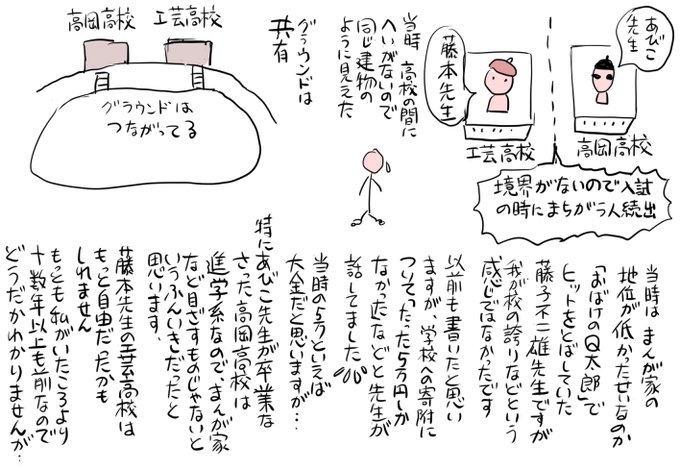 あびこ
先生
高岡高校
藤本先生
工芸高校
境界がないので入試
の時にまちがう人続出
当時 高校の間に
へいがないので
同じ建物の
ように見えた
グラウンドは
共有
工芸高校
高岡高校
グラウンドは
つながってる
当時は まんが家の
地位が低かったせいなのか
「おばけのQ太郎」で
ヒットをとばしていた
藤子不二雄先生ですが
我が校の誇りなどという
感じではなかったです
以前も書いたと思い
ますが、学校への寄附に
ついて「たった5万円しか
なかった」などと先生が
話してました
当時の5万といえば
大金だと思いますが…
特にあびこ先生が卒業な
さった高岡高校は
進学系なので、まんが家
など目ざすものじゃないと
いうふんいきだったと
思います、
藤本先生の工芸高校は
もっと自由だったかも
しれません
もっとも私がいたころより
十数年以上も前なので
どうだかわかりませんが…